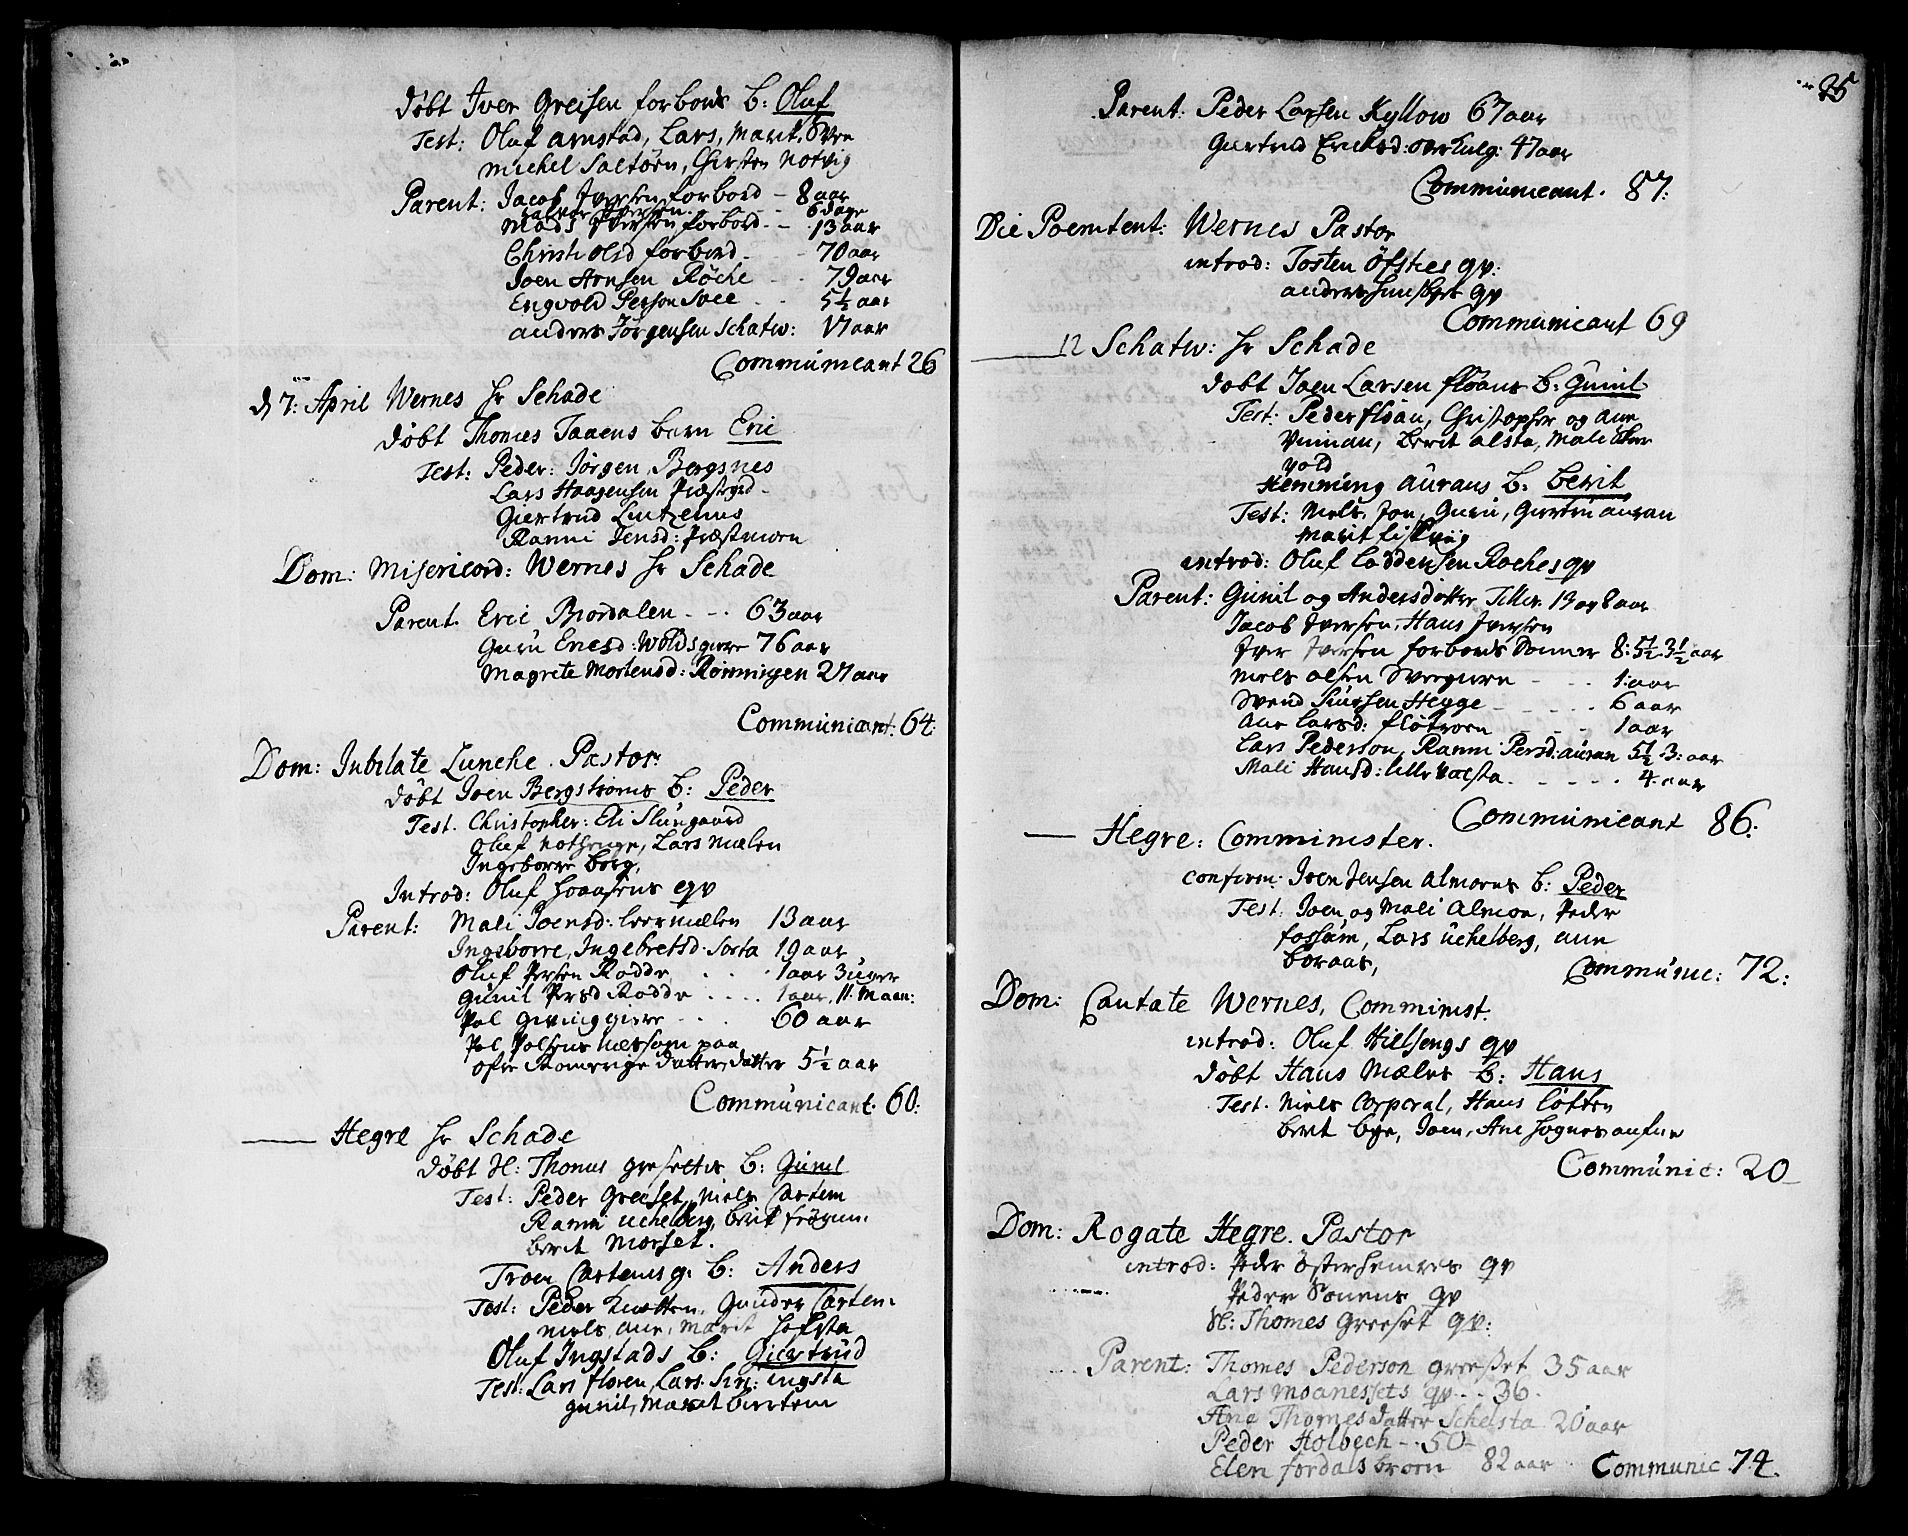 Døbt Iver Greisen forbords b: Oluf
Test: Oluf Arnstad, Lars, Marit, Svee
Michel Saltøen, Chirsten Notvig
Parent: Jacob Iversen forbord - 8 aar
6 dage
Mads Iversen forbord - - 13 aar
Christi Olsd forbord - - 70 aar
Joen Arnsen Røche - - 79 aar
Engvold Person Svee - - 5½ aar
Anders Jørgensen Schatv: 17 aar
Communicant 26
d 7: April Wernes Hr Schade
Døbt Thomes Taaens barn Eric
Test: Peder: Jørgen, Bergsnes
Lars Haagensen Præstegrd
Giertrud Lutzenus
Ranni Jensd: Præstmoen
Dom: Misericord: Wernes Hr Schade
Parent. Eric Biordalen - - - 63 aar
Guru Ericsd: Woldsgiere 76 aar
Magrete Mortensd: Rønningen 27 aar
Communicant: 64.
Dom: Jubilate Lunche. Pastor
Døbt Joen Bergstrøms b: Peder
Test. Christopher: Eli Slungaard
Oluf Nothenge, Lars Mælen
Ingeborre Berg,
Introd: Oluf Hoaasens qv
Parent: Mali Joensd: Leermælen 13 aar
Ingeborre, Ingebretsd: Sorta 19 aar
Oluf Persen Rodde . . . 1 aar 3 uger
Gunil Persd Rodde . . . . 1 aar, 11. Maan:
Pol Givinggiere - - . 60 aar
Pol Polsens
ofre datter datter 5½ aar
Communicant. 60:
——— Hegre Hr Schade
Døbt H: Thomis Greesettes b: Gunil
Test: Peder Greeset, Niels Cartem
Ranni Uchelberg, berit frøgen:
berit Morset.
Troen Cartemsg: b: Anders
Test: Peder Knotten, Gunder Carten.
Niels, ane, Marit Hofsta
Oluf Ingstads b: Giertrud
Test: Lars floren, Lars. Siri: ingsta
gunil, Marit bertem
25
Parent: Peder Larsen Kyllow 67 aar
Giertrud Ericksd: overkulg: 47 aar
Communicant. 87:
Die Poenitent: Wernes Pastor
introd: Tosten Öfsties qv:
anders qv
Communicant 69
——— 12 Schatw: Hr Schade
Døbt Joen Larsen fløans b: Gunil
Test: Peder fløan, Christopher og Ane
Vinnan, Berit alsta, Mali Aker
vold
Hemming Aurans b: Berit
Test: Niels, Jon, Guru, Giertru auran
Marit fiskviig
introd: Oluf Loddensen Roches qv
Parent: Gunil og Andersdøtter Tiller 13 og 8 aar
Jacob Iversen, Hans Iversen
Iver Iversen forbords Sønner 8: 5½ 3½ aar
Niels Olsen Sveegieren - - - - 1: aar
Svend Siursen Hegge - - - - - 6 aar
Ane Larsd: fløtroen - - 1 aar
Lars Pederson, Ranni Persd: auran 5½ 3: aar
Mali Hansd: lille Valsta - - - - - 4: aar
Communicant 86:
——— Hegre: Comminister.
confirm: Joen Jensen Almoens b: Peder
Test: Joen, og Mali Almoe, Peder
fossum, Lars Uchelberg, ane
boraas,
Communic: 72:
Dom: Cantate Wernes, Comminist.
introd: Oluf Hielsengs qv
Døbt Hans Mæles b: Hans
Test. Niels Corporal, Hans løften
berit bye, Joen, Ane
Communic: 20
Dom: Rogate Hegre. Pastor
introd: Peder Österhemres qv
Peder Sonens qv
H: Thomes Greeset qv:
Parent: Thomes Pederson greeset 35 aar
Lars Moanessets qv - - 36.
Ane Thomesdatter Schelsta 20 aar
Peder Holbech - - 50
Elen fordalsbroen 82 aar Communic 74.